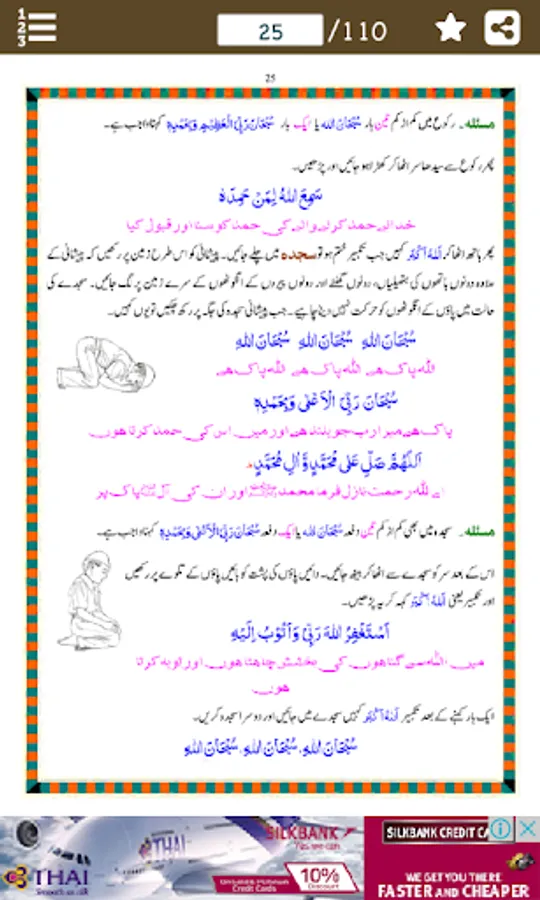 1
2
3
25
/110
25
مسئلہ۔ رکوع میں کم از کم تین بار سُبْحَانَ اللہ یا ایک بار سُبْحَانَ رَبِّیَ الْعَظِیْمِ وَبِحَمْدِہٖ کہنا واجب ہے۔
پھر رکوع سے سیدھا سر اٹھا کر کھڑا ہو جائیں اور پڑھیں۔
سَمِعَ اللہُ لِمَنْ حَمِدَہٗ
خدا نے حمد کرنے والے کی حمد کو سنا اور قبول کیا
پھر ہاتھ اٹھا کر اَللہُ اَکْبَرُ کہیں جب تکبیر ختم ہو تو سجدہ میں چلے جائیں۔ پیشانی کو اس طرح زمین پر رکھیں کہ پیشانی کے
علاوہ دونوں ہاتھوں کی ہتھیلیاں، دونوں گھٹنے اور دونوں پیروں کے انگوٹھوں کے سرے زمین پر لگ جائیں۔ سجدے کی
حالت میں پاؤں کے انگوٹھوں کو حرکت نہیں دینا چاہیے۔ جب پیشانی سجدہ کی جگہ پر رکھ چکیں تو یوں کہیں۔
سُبْحَانَ اللہِ سُبْحَانَ اللہِ سُبْحَانَ اللہِ
اللہ پاک ہے اللہ پاک ہے اللہ پاک ہے
سُبْحَانَ رَبِّیَ الْاَعْلٰی وَبِحَمْدِہٖ
پاک ہے میرا رب جو بلند ہے اور میں اس کی حمد کرتا ہوں
اَللّٰھُمَّ صَلِّ عَلٰی مُحَمَّدٍ وَّاٰلِ مُحَمَّدٍ
اے اللہ رحمت نازل فرما محمد ﷺ اور ان کی آل پاک پر
مسئلہ۔ سجدہ میں بھی کم از کم تین دفعہ سُبْحَانَ اللہ یا ایک دفعہ سُبْحَانَ رَبِّیَ الْاَعْلٰی وَبِحَمْدِہٖ کہنا واجب ہے۔
اس کے بعد سر کو سجدے سے اٹھا کر بیٹھ جائیں۔ دائیں پاؤں کی پشت کو بائیں پاؤں کے تلوے پر رکھیں
اور تکبیر یعنی اَللہُ اَکْبَرُ کہہ کر یہ پڑھیں۔
اَسْتَغْفِرُ اللہَ رَبِّیْ وَاَتُوْبُ اِلَیْہِ
میں اللہ سے گناہوں کی بخشش چاہتا ہوں اور توبہ کرتا
ہوں
ایک بار کہنے کے بعد تکبیر اَللہُ اَکْبَرُ کہیں سجدے میں جائیں اور دوسرا سجدہ کریں۔
سُبْحَانَ اللہِ، سُبْحَانَ اللہِ، سُبْحَانَ اللہِ
SILKBANK
Yes we can
THAI
THAI
Smooth as silk
Credit Cards
10%
Discount
SILKBANK CREDIT CA
WE GET YOU THERE
FASTER AND CHEAPER